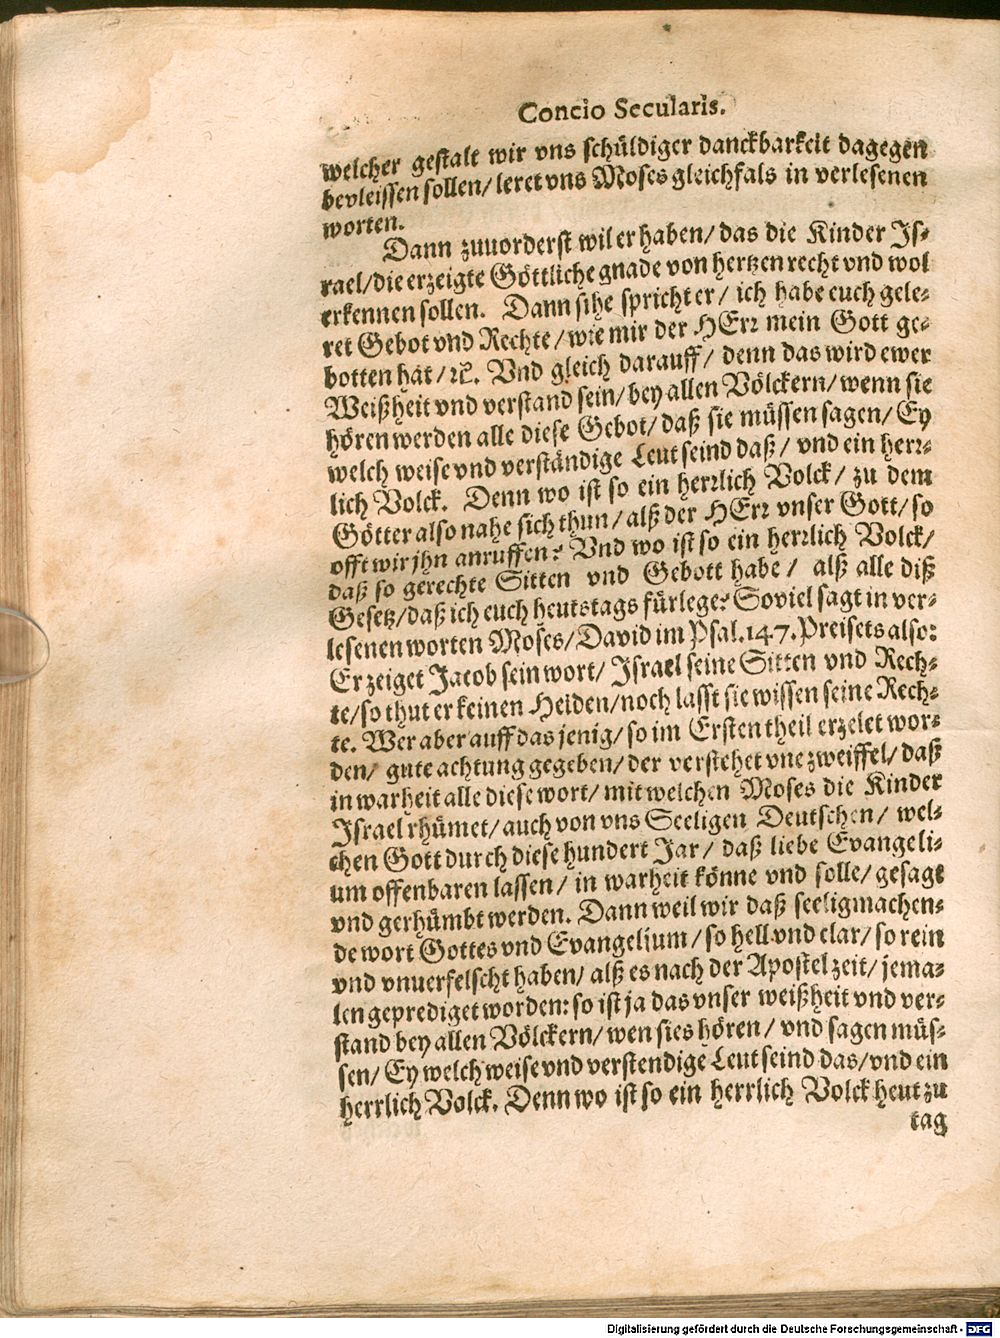 Concio Secularis.
welcher gestalt wir vns schüldiger danckbarkeit dagegen
bevleissen sollen/ leret vns Moses gleichfals in verlesenen
worten.
Dann zuuorderst wil er haben/ das die Kinder Is-
rael/ die erzeigte Göttliche gnade von hertzen recht vnd wol
erkennen sollen. Dann sihe spricht er/ ich habe euch gele-
ret Gebot vnd Rechte/ wie mir der HErr mein Gott ge-
botten hat/ ꝛc. Vnd gleich darauff/ denn das wird ewer
Weißheit vnd verstand sein/ bey allen Völckern/ wenn sie
hören werden alle diese Gebot/ daß sie müssen sagen/ Ey
welch weise vnd verständige Leut seind daß/ vnd ein herr-
lich Volck. Denn wo ist so ein herrlich Volck/ zu dem
Götter also nahe sich thun/ alß der HErr vnser Gott/ so
offt wir jhn anruffen? Vnd wo ist so ein herrlich Volck/
daß so gerechte Sitten vnd Gebott habe/ alß alle diß
Gesetz/ daß ich euch heutstags fürlege? Soviel sagt in ver-
lesenen worten Moses/ David im Psal. 147. Preisets also:
Er zeiget Jacob sein wort/ Israel seine Sitten vnd Rech-
te/ so thut er keinen Heiden/ noch lasst sie wissen seine Rech-
te. Wer aber auff das jenig/ so im Ersten theil erzelet wor-
den/ gute achtung gegeben/ der verstehet vne zweiffel/ daß
in warheit alle diese wort/ mit welchen Moses die Kinder
Israel rhümet/ auch von vns Seeligen Deutschen/ wel-
chen Gott durch diese hundert Jar/ daß liebe Evangeli-
um offenbaren lassen/ in warheit könne vnd solle/ gesagt
vnd gerhümbt werden. Dann weil wir daß seeligmachen-
de wort Gottes vnd Evangelium/ so hell vnd clar/ so rein
vnd vnuerfelscht haben/ alß es nach der Apostel zeit/ jema-
len geprediget worden: so ist ja das vnser weißheit vnd ver-
stand bey allen Völckern/ wen sies hören/ vnd sagen müs-
sen/ Ey welch weise vnd verstendige Leut seind das/ vnd ein
herrlich Volck. Denn wo ist so ein herrlich Volck heut zu
tag
Digitalisierung gefördert durch die Deutsche Forschungsgemeinschaft - DFG